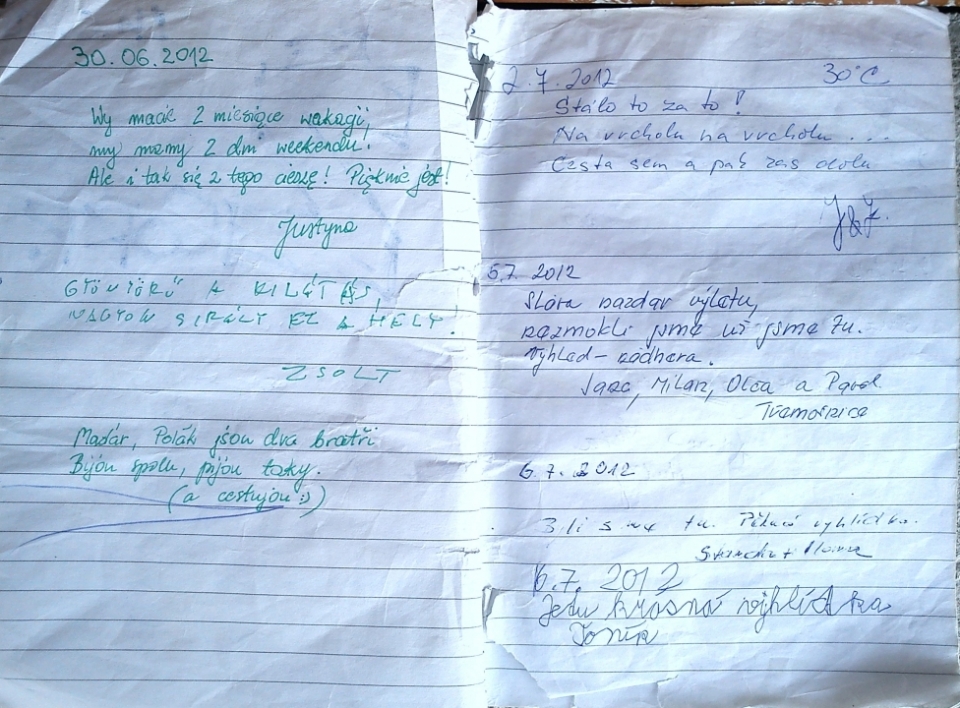 30.06.2012
Wy macie 2 miesiące wakacji,
my mamy 2 dni weekendu.
Ale i tak się z tego cieszę! Pięknie jest!
Justyna
GYÖNYÖRŰ A KILÁTÁS,
NAGYON KIRÁLY EZ A HELY!
ZSOLT
Maďár, Polák jsou dva bratři
Bijou spolu, pijou taky.
(a cestujou :))
2.7.2012 30°C
Stálo to za to!
Na vrcholu na vrcholu ...
Cesta sem a pak zas dolu
J&J.
5.7. 2012
Sláva nazdar výletu,
nezmokli jsme už jsme tu.
Výhled - nádhera.
Milan, Olga a Pavel
Třemošnice
6.7.2012
Byli sme tu. Pěkná vyhlídka.
Standa + Hana
6.7.2012
Je tu krásná vyhlídka
Toník